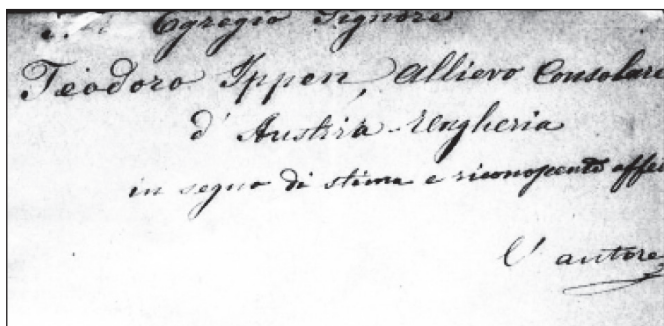 Egregio Signore
Teodoro Ippen, Allievo Consolare
d' Austria-Ungheria
in segno di stima e riconoscente affe
L' autore